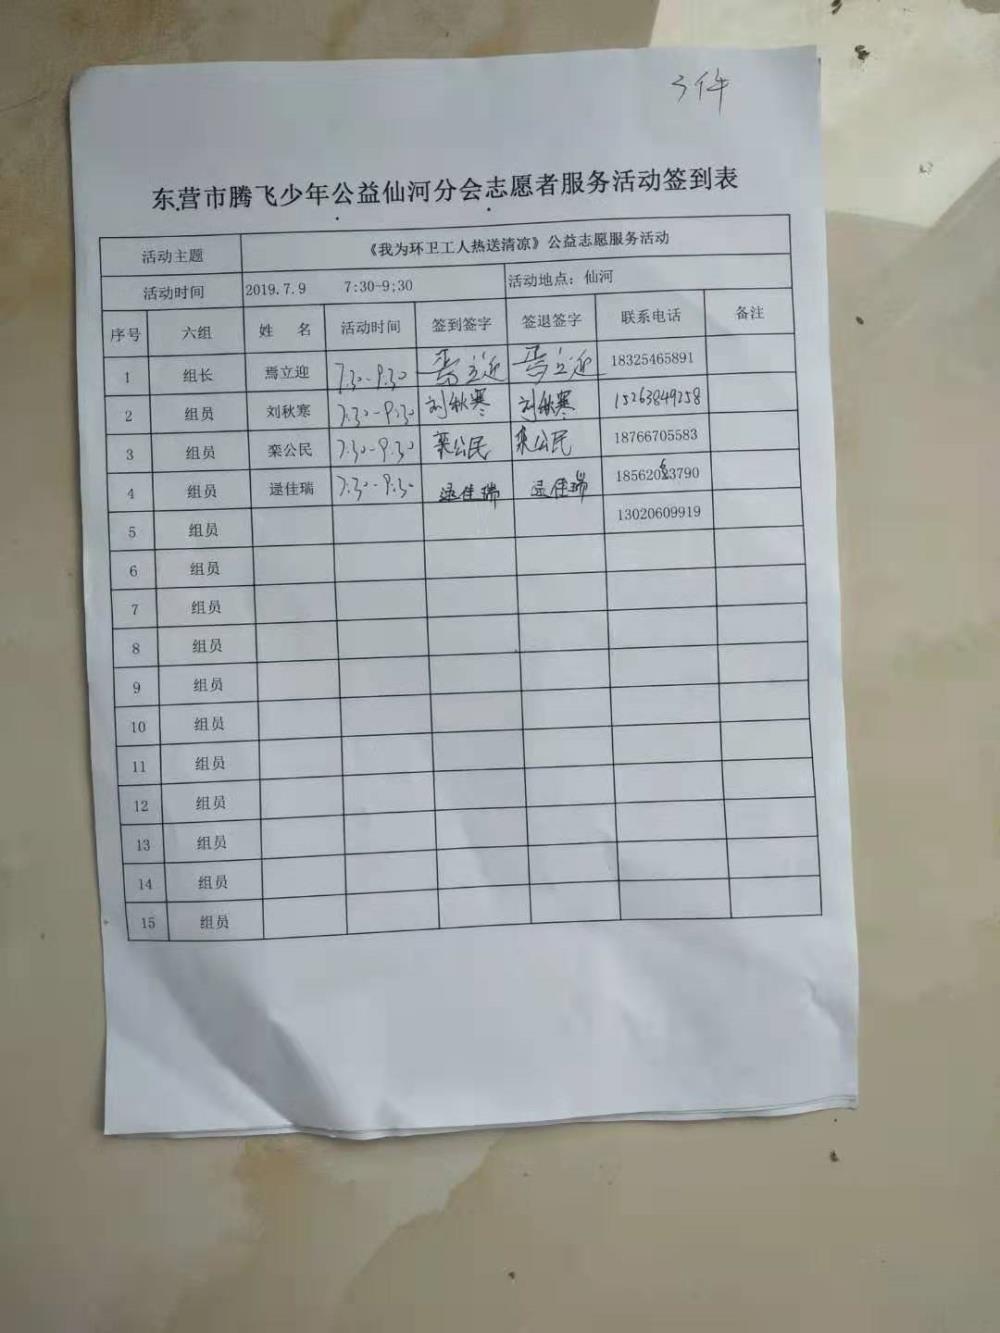 3件
东营市腾飞少年公益仙河分会志愿者服务活动签到表
活动主题 《我为环卫工人热送清凉》公益志愿服务活动
活动时间 2019.7.9 7:30-9;30 活动地点：仙河
序号 六组 姓 名 活动时间 签到签字 签退签字 联系电话 备注
1 组长 焉立迎 7:30-9:30 焉立迎 焉立迎 18325465891
2 组员 刘秋寒 7:30-9:30 刘秋寒 刘秋寒 15263849258
3 组员 栾公民 7:30-9:30 栾公民 栾公民 18766705583
4 组员 逯佳瑞 7:30-9:30 逯佳瑞 逯佳瑞
5 组员 13020609919
6 组员
7 组员
8 组员
9 组员
10 组员
11 组员
12 组员
13 组员
14 组员
15 组员